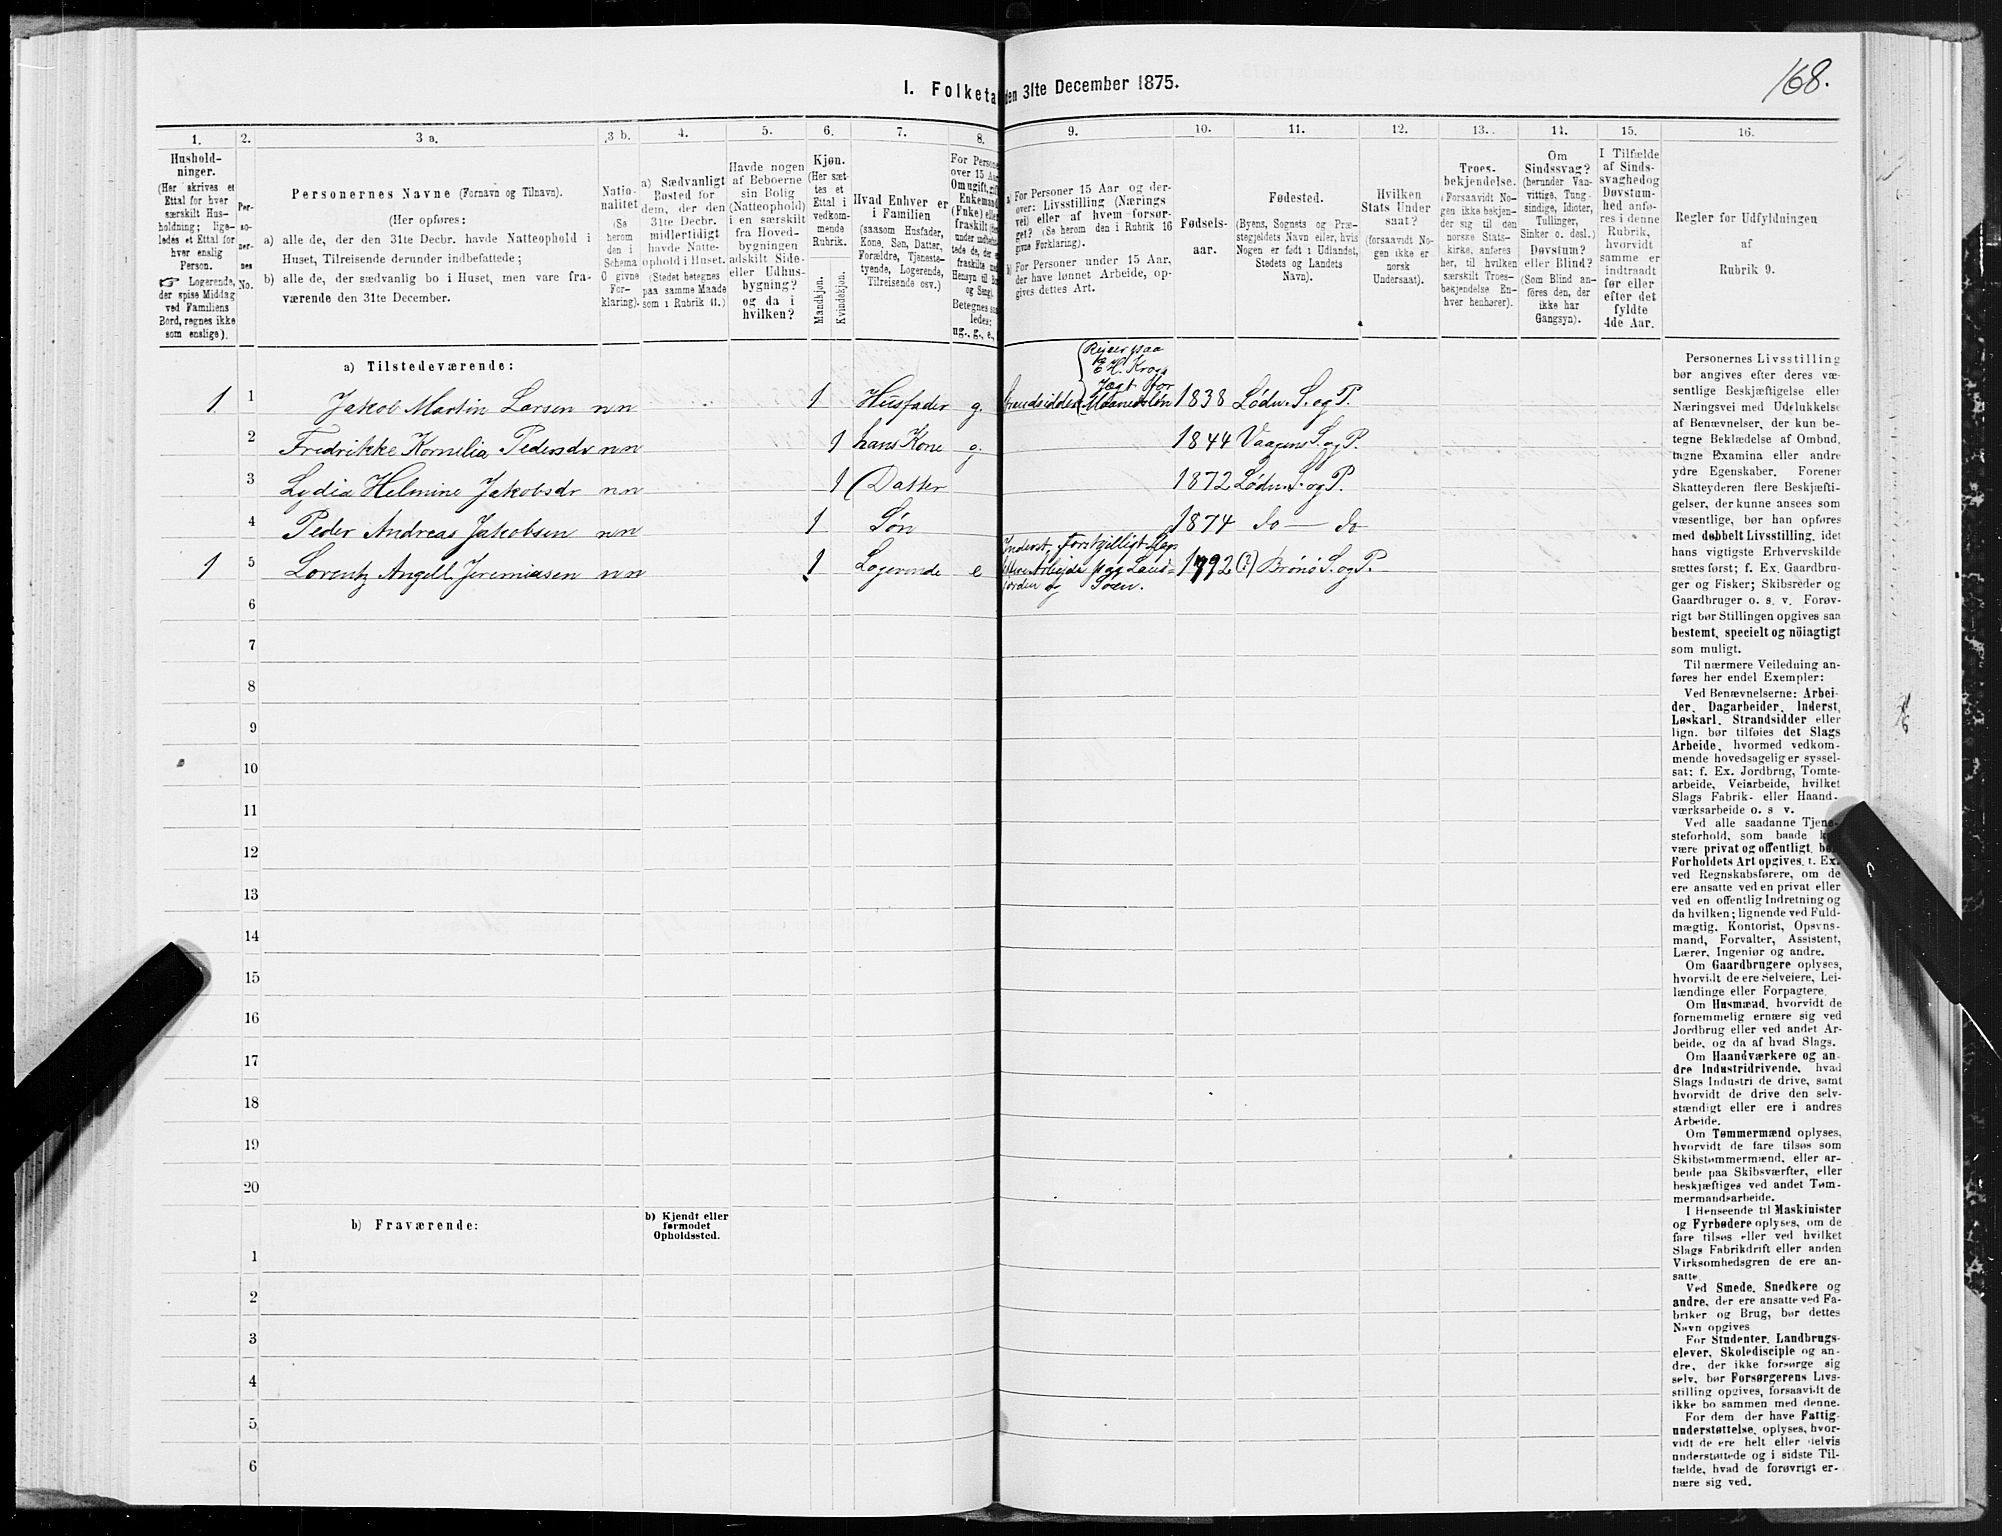 168.
I. Folketa
den 31te December 1875.
1.
Hushold-
ninger.
(Her skrives et
Ettal for hver
særskilt Hus-
holdning; lige-
ledes et Ettal for
hver enslig
Person.
☞ Logerende,
der spise Middag
ved Familiens
Bord, regnes ikke
som enslige).
2.
Per-
so-
ner-
nes
No.
3 a.
Personernes Navne (Fornavn og Tilnavn).
(Her opføres:
a) alle de, der den 31te Decbr. havde Natteophold i
Huset, Tilreisende derunder indbefattede;
b) alle de, der sædvanlig bo i Huset, men vare fra-
værende den 31te December.
3 b.
Natio-
nalitet
(Se
herom
den i
Schema
O givne
For-
klaring).
4.
a) Sædvanligt
Bosted for
dem, der den
31te Decbr.
midlertidigt
havde Natte-
ophold i Huset.
(Stedet betegnes
paa samme Maade
som i Rubrik 11.)
5.
Havde nogen
af Beboerne
sin Bolig
(Natteophold)
i en særskilt
fra Hoved-
bygningen
adskilt Side-
eller Udhus-
bygning?
og da i
hvilken?
6.
Kjøn.
(Her sæt-
tes et
Ettal i
vedkom-
mende
Rubrik.
Mandkjøn.
Kvindekjøn.
7.
Hvad Enhver er
i Familien
(saasom Husfader,
Kone, Søn, Datter,
Forældre, Tjeneste-
tyende, Logerende,
Tilreisende osv.)
8.
For Persone
over 15 Aar
Om ugift, gift
Enkemand
(Enke) eller
fraskilt
ug., g., e.,
9.
a) For Personer 15 Aar og der-
over: Livsstilling (Nærings
vei) eller af hvem forsør-
get? (Se herom den i Rubrik 16
givne Forklaring).
b) For Personer under 15 Aar,
der have lønnet Arbeide, op-
gives dettes Art.
10.
Fødsels-
aar.
11.
Fødested.
(Byens, Sognets og Præ-
stegjeldets Navn eller, hvis
Nogen er født i Udlandet,
Stedets og Landets
Navn).
12.
Hvilken
Stats Under
saat?
(forsaavidt No-
gen ikke er
norsk
Undersaat).
13.
Troes-
bekjendelse.
(Forsaavidt No-
gen ikke bekjen-
der sig til den
norske Stats-
kirke, anføres
her, til hvilken
særskilt Troes-
bekjendelse En-
hver henhører).
14.
Om
Sindssvag?
(herunder Van-
vittige, Tung-
sindige, Idioter,
Tullinger,
Sinker o. desl.)
Døvstum?
eller Blind?
(Som Blind an-
føres den, der
ikke har
Gangsyn).
15.
I Tilfælde
af Sinds-
svaghed og
Døvstum-
hed anfø-
res i denne
Rubrik,
hvorvidt
samme er
indtraadt
før eller
efter det
fyldte
4de Aar.
16.
Regler for Udfyldningen
af
Rubrik 9.
a) Tilstedeværende:
1 1 Jakob Martin Larsen nn 1 Husfader g. Strandsidder {Reiser paa E H. Krogs Jægt for Maanedsløn 1838 Lødn. S. og P.
2 Fredrikke Kornelia Pedersdr nn 1 hans Kone g. 1844 Vaagens S. og P.
3 Lydia Helmine Jakobsdr nn 1 Datter 1872 Lødn. S. og P.
4 Peder Andreas Jakobsen nn 1 Søn 1874 do — do
1 5 Lorentz Angell Jeremiasen nn 1 Logerende e Inderst, Forskjelligt Slags Arbejde paa Land- jorden og Søen. 1792 (?) Brønø S. og P.
6
7
8
9
10
11
12
13
14
15
16
17
18
19
20
b) Fraværende:
b) Kjendt eller
formodet
Opholdssted.
1
2
3
4
5
6
Personernes Livsstilling
bør angives efter deres væ-
sentlige Beskjæftigelse eller
Næringsvei med Udelukkelse
af Benævnelser, der kun be-
tegne Beklædelse af Ombud,
tagne Examina eller andre
ydre Egenskaber. Forener
Skatteyderen flere Beskjæfti-
gelser, der kunne ansees som
væsentlige, bør han opføres
med dobbelt Livsstilling, idet
hans vigtigste Erhvervskilde
sættes først; f. Ex. Gaardbru-
ger og Fisker; Skibsreder og
Gaardbruger o. s. v. Forøv-
rigt bør Stillingen opgives saa
bestemt, specielt og nöiagtigt
som muligt.
Til nærmere Veiledning an-
føres her endel Exempler:
Ved Benævnelserne: Arbei-
der, Dagarbeider, Inderst,
Løskarl, Strandsidder eller
lign. bør tilføies det Slags
Arbeide, hvormed vedkom-
mende hovedsagelig er syssel-
sat; f. Ex. Jordbrug, Tomte-
arbeide, Veiarbeide, hvilket
Slags Fabrik- eller Haand-
værksarbeide o. s v.
Ved alle saadanne Tjene-
steforhold, som baade k
være privat og offentligt, bø
Forholdets Art opgives, t. Ex.
ved Regnskabsførere, om de
ere ansatte ved en privat eller
ved en offentlig Indretning og
da hvilken; lignende ved Fuld-
mægtig, Kontorist, Opsyns-
mand, Forvalter, Assistent,
Lærer, Ingeniør og andre.
Om Gaardbrugere oplyses,
hvorvidt de ere Selveiere, Lei-
lændinge eller Forpagtere.
Om Husmænd, hvorvidt de
fornemmelig ernære sig ved
Jordbrug eller ved andet Ar-
beide, og da af hvad Slags.
Om Haandværkere og an-
dre Industridrivende, hvad
Slags Industri de drive, samt
hvorvidt de drive den selv-
stændigt eller ere i andres
Arbeide.
Om Tømmermænd oplyses,
hvorvidt de fare tilsøs som
Skibstømmermænd, eller ar-
beide paa Skibsværfter, eller
beskjæftiges ved andet Tøm-
mermandsarbeide.
I Henseende til Maskinister
og Fyrbødere oplyses, om de
fare tilsøs eller ved hvilket
Slags Fabrikdrift eller anden
Virksomhedsgren de ere an-
satte.
Ved Smede, Snedkere og
andre, der ere ansatte ved Fa-
briker og Brug, bør dettes
Navn opgives
For Studenter, Landbrugs-
elever, Skoledisciple og an-
dre, der ikke forsørge sig
selv, bør Forsørgerens Livs-
stilling opgives, forsaavidt de
ikke bo sammen med denne.
For dem der have Fattig-
understøttelse, oplyses, hvor-
vidt de ere helt eller delvis
understøttede og i sidste Til-
fælde, hvad de forøvrigt er-
nære sig ved.